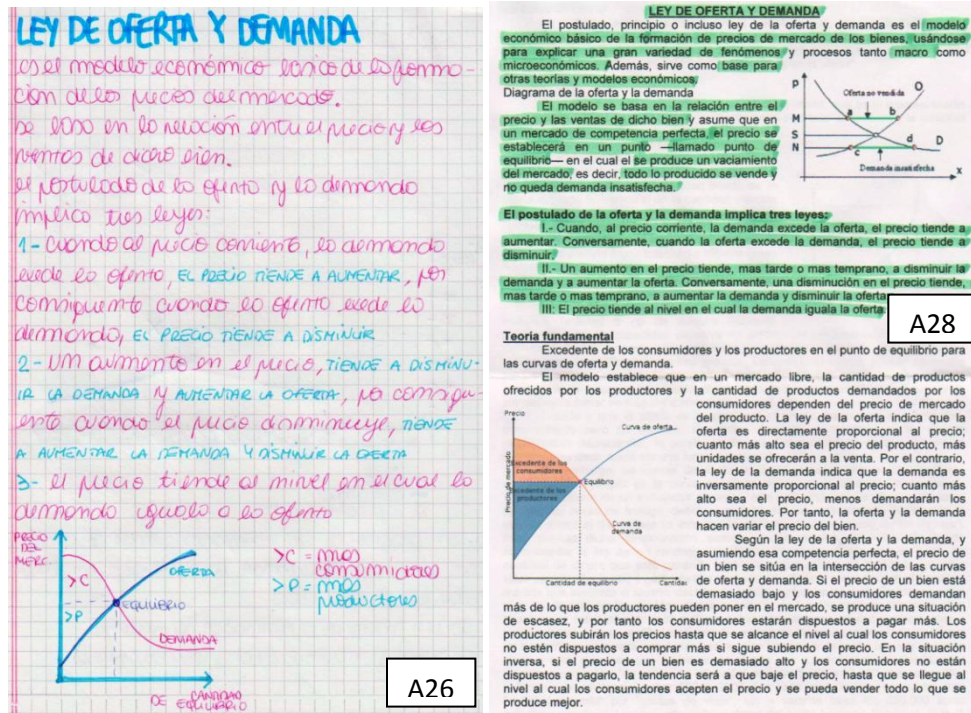 LEY DE OFERTA Y DEMANDA
es el modelo económico básico de la forma-
ción de los precios del mercado.
Se basa en la relación entre el precio y las
ventas de dicho bien.
el postulado de la oferta y la demanda
implica tres leyes:
1- Cuando al precio corriente, la demanda
excede la oferta, EL PRECIO TIENDE A AUMENTAR, por
consiguiente cuando la oferta excede la
demanda, EL PRECIO TIENDE A DISMINUIR
2- Un aumento en el precio, TIENDE A DISMINU-
IR LA DEMANDA Y AUMENTAR LA OFERTA, por consigui-
ente cuando el precio disminuye, TIENDE
A AUMENTAR LA DEMANDA Y DISMINUIR LA OFERTA
3- el precio tiende al nivel en el cual la
demanda iguala a la oferta
PRECIO
DEL
MERC.
>C
>P
OFERTA
EQUILIBRIO
DEMANDA
CANTIDAD
DE EQUILIBRIO
>C = mas
consumidores
>P = mas
productores
A26
LEY DE OFERTA Y DEMANDA
El postulado, principio o incluso ley de la oferta y demanda es el modelo
económico básico de la formación de precios de mercado de los bienes, usándose
para explicar una gran variedad de fenómenos y procesos tanto macro como
microeconómicos. Además, sirve como base para
otras teorías y modelos económicos.
Diagrama de la oferta y la demanda
El modelo se basa en la relación entre el
precio y las ventas de dicho bien y asume que en
un mercado de competencia perfecta, el precio se
establecerá en un punto —llamado punto de
equilibrio— en el cual el se produce un vaciamiento
del mercado, es decir, todo lo producido se vende y
no queda demanda insatisfecha.
P
M
S
N
Oferta no vendida
O
a
b
c
d
D
Demanda insatisfecha
x
El postulado de la oferta y la demanda implica tres leyes:
I.- Cuando, al precio corriente, la demanda excede la oferta, el precio tiende a
aumentar. Conversamente, cuando la oferta excede la demanda, el precio tiende a
disminuir.
II.- Un aumento en el precio tiende, mas tarde o mas temprano, a disminuir la
demanda y a aumentar la oferta. Conversamente, una disminución en el precio tiende,
mas tarde o mas temprano, a aumentar la demanda y disminuir la oferta
III: El precio tiende al nivel en el cual la demanda iguala la oferta.
A28
Teoría fundamental
Excedente de los consumidores y los productores en el punto de equilibrio para
las curvas de oferta y demanda.
El modelo establece que en un mercado libre, la cantidad de productos
ofrecidos por los productores y la cantidad de productos demandados por los
consumidores dependen del precio de mercado
del producto. La ley de la oferta indica que la
oferta es directamente proporcional al precio;
cuanto más alto sea el precio del producto, más
unidades se ofrecerán a la venta. Por el contrario,
la ley de la demanda indica que la demanda es
inversamente proporcional al precio; cuanto más
alto sea el precio, menos demandarán los
consumidores. Por tanto, la oferta y la demanda
hacen variar el precio del bien.
Según la ley de la oferta y la demanda, y
asumiendo esa competencia perfecta, el precio de
un bien se sitúa en la intersección de las curvas
de oferta y demanda. Si el precio de un bien está
demasiado bajo y los consumidores demandan
más de lo que los productores pueden poner en el mercado, se produce una situación
de escasez, y por tanto los consumidores estarán dispuestos a pagar más. Los
productores subirán los precios hasta que se alcance el nivel al cual los consumidores
no estén dispuestos a comprar más si sigue subiendo el precio. En la situación
inversa, si el precio de un bien es demasiado alto y los consumidores no están
dispuestos a pagarlo, la tendencia será a que baje el precio, hasta que se llegue al
nivel al cual los consumidores acepten el precio y se pueda vender todo lo que se
produce mejor.
Precio
Precio de mercado
Curva de oferta
Excedente de los
consumidores
Equilibrio
Excedente de los
productores
Curva de
demanda
Cantidad de equilibrio
Cantidad